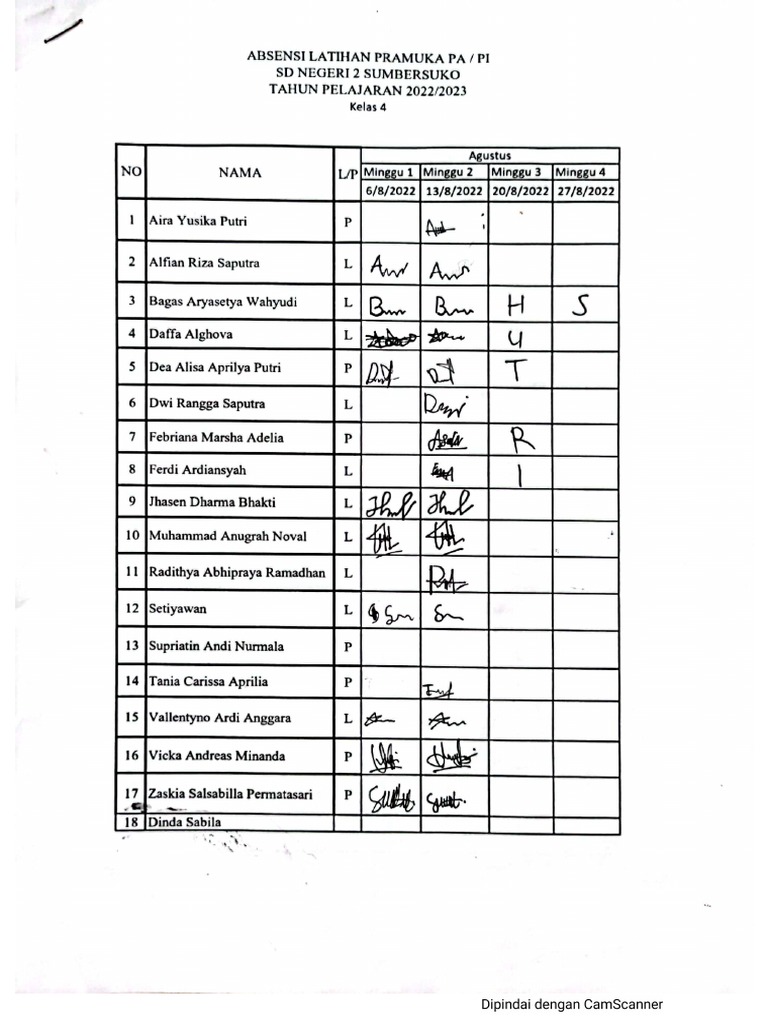 ABSENSI LATIHAN PRAMUKA PA / PI
SD NEGERI 2 SUMBERSUKO
TAHUN PELAJARAN 2022/2023
Kelas 4
NO NAMA L/P Agustus
Minggu 1 Minggu 2 Minggu 3 Minggu 4
6/8/2022 13/8/2022 20/8/2022 27/8/2022
1 Aira Yusika Putri P
2 Alfian Riza Saputra L
3 Bagas Aryasetya Wahyudi L H S
4 Daffa Alghova L U
5 Dea Alisa Aprilya Putri P T
6 Dwi Rangga Saputra L
7 Febriana Marsha Adelia P R
8 Ferdi Ardiansyah L I
9 Jhasen Dharma Bhakti L
10 Muhammad Anugrah Noval L
11 Radithya Abhipraya Ramadhan L
12 Setiyawan L
13 Supriatin Andi Nurmala P
14 Tania Carissa Aprilia P
15 Vallentyno Ardi Anggara L
16 Vicka Andreas Minanda P
17 Zaskia Salsabilla Permatasari P
18 Dinda Sabila
Dipindai dengan CamScanner